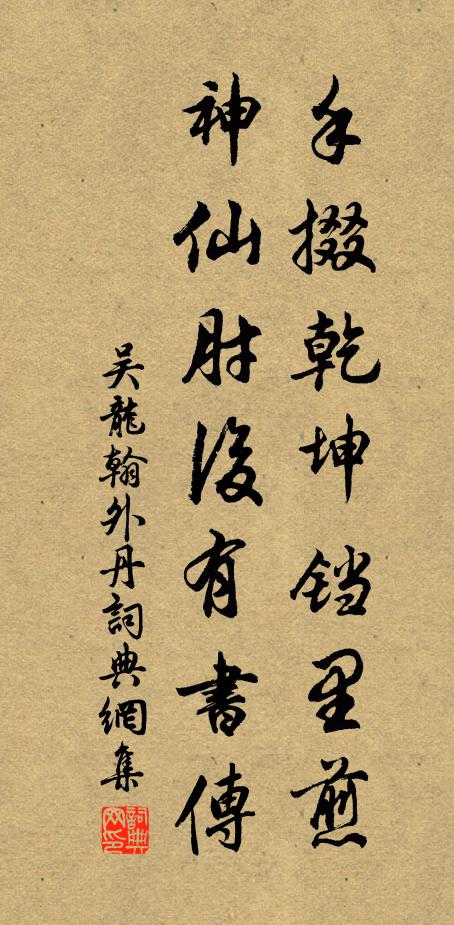 手掇乾坤铛里煎
神仙肘後有書傳
吴龍翰外丹詞典網集
詞典網印